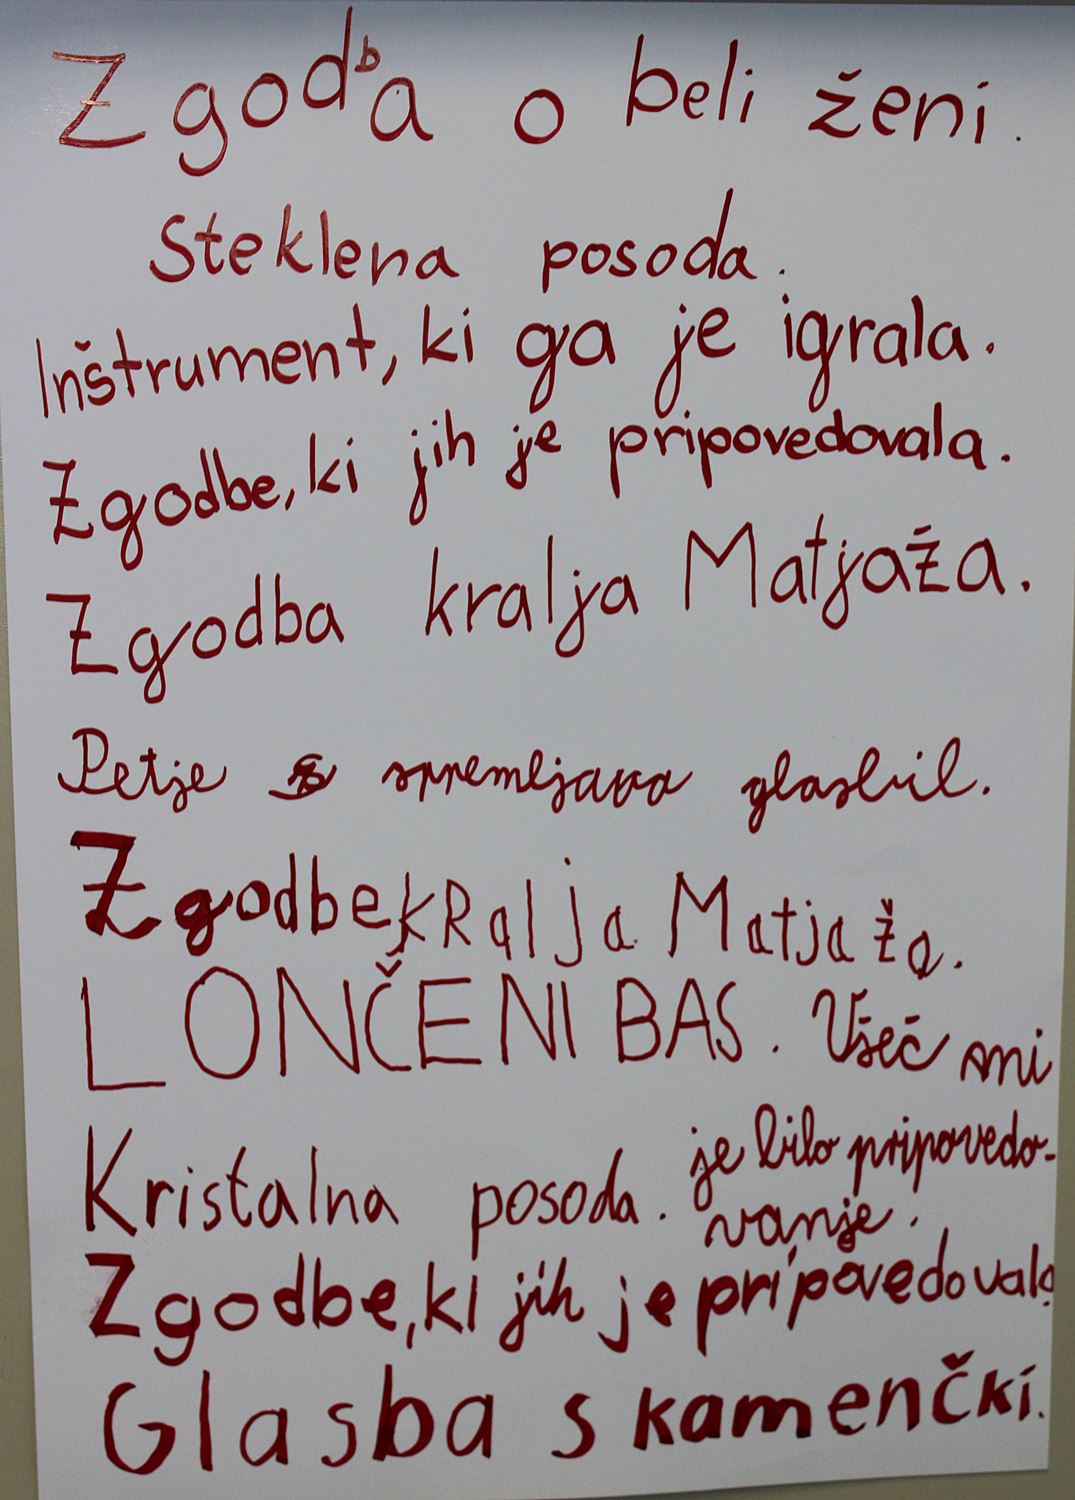 Zgodba o beli ženi.
Steklena posoda.
Inštrument, ki ga je igrala.
Zgodbe, ki jih je pripovedovala.
Zgodba kralja Matjaža.
Petje spremljava glasbil.
Zgodbe kRalja Matjaža.
LONČENI BAS. Všeč mi
je bilo pripovedo-
vanje.
Kristalna posoda.
Zgodbe, ki jih je pripovedovala
Glasba s kamenčki.